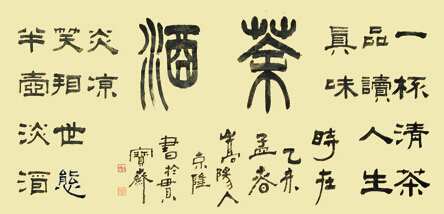 一杯清茶
品讀人生
真味
茶酒
半壺淡酒
笑相世態
炎凉
時在
乙未
孟春
嵩陽人
京隆
書於
寶齋